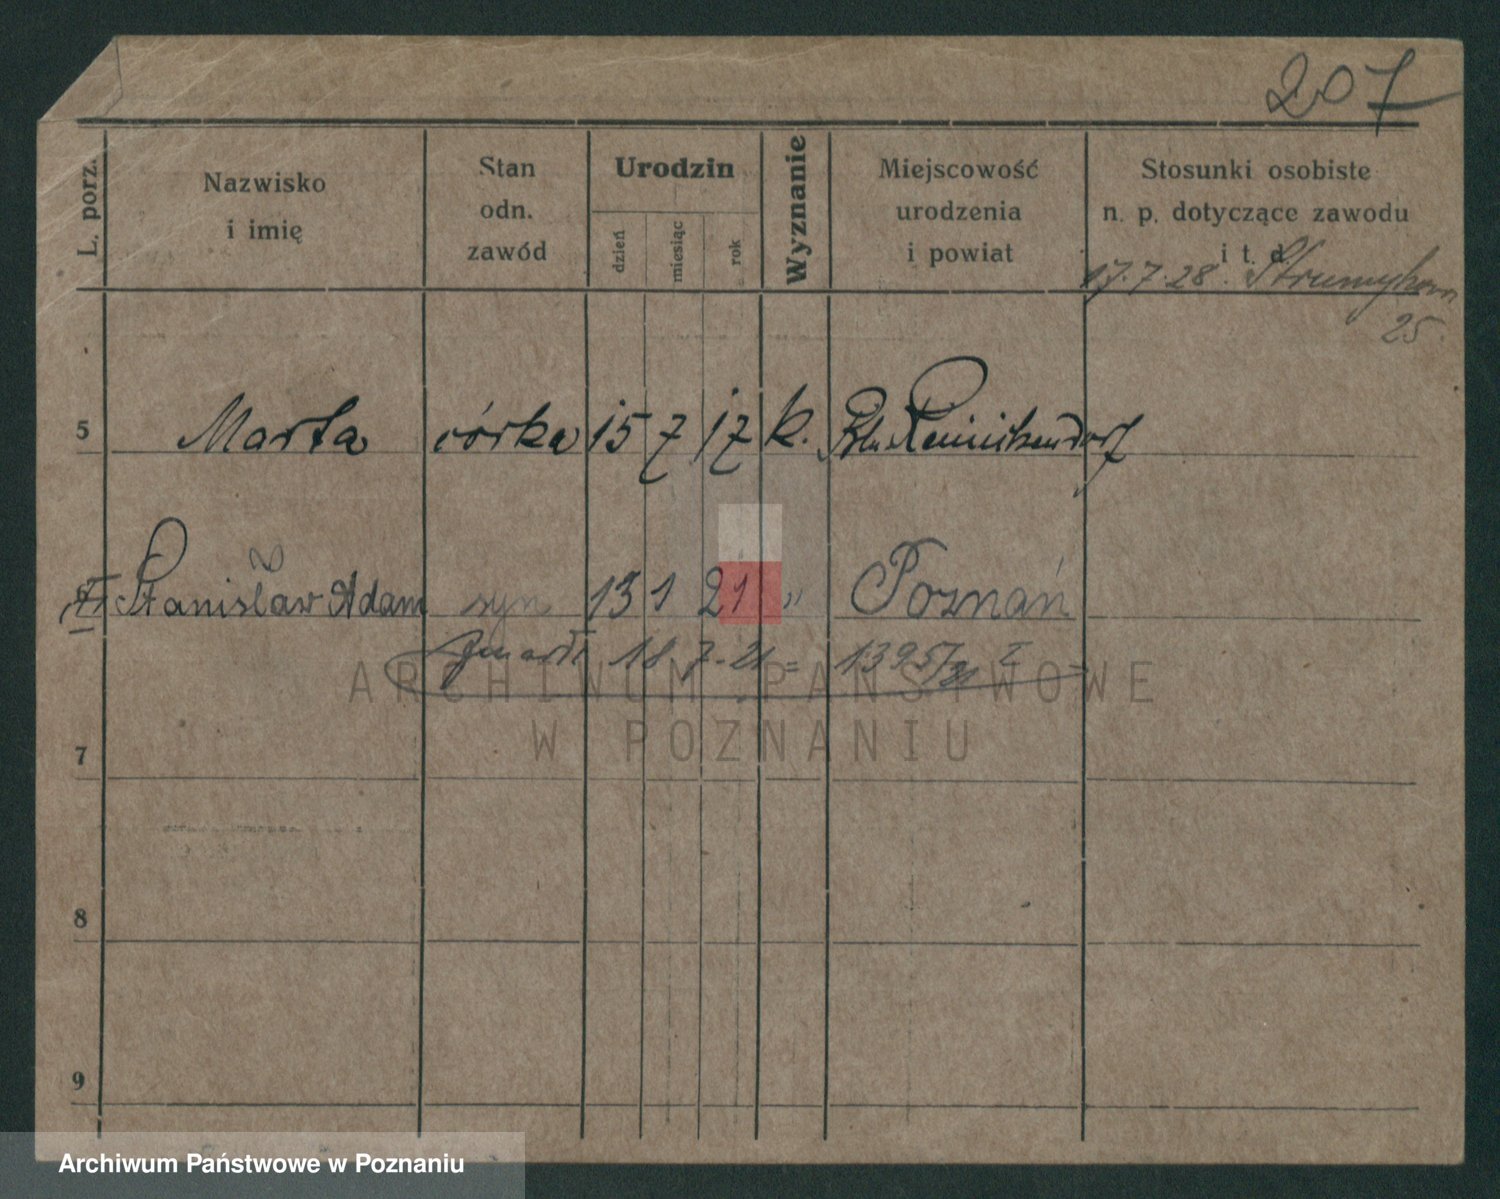 207
L. porz.
Nazwisko
i imię
Stan
odn.
zawód
Urodzin
dzień
miesiąc
rok
Wyznanie
Miejscowość
urodzenia
i powiat
Stosunki osobiste
n. p. dotyczące zawodu
i t. d.
17.7.28.
25.
5 Marta córka 15 7 17 k. Bln. Reinickendorf
6 Stanisław Adam syn 13 1 21 " Poznań
zmarł 18 7. 21 = 1395/21 I
ARCHIWUM PAŃSTWOWE
W POZNANIU
7
8
9
Archiwum Państwowe w Poznaniu